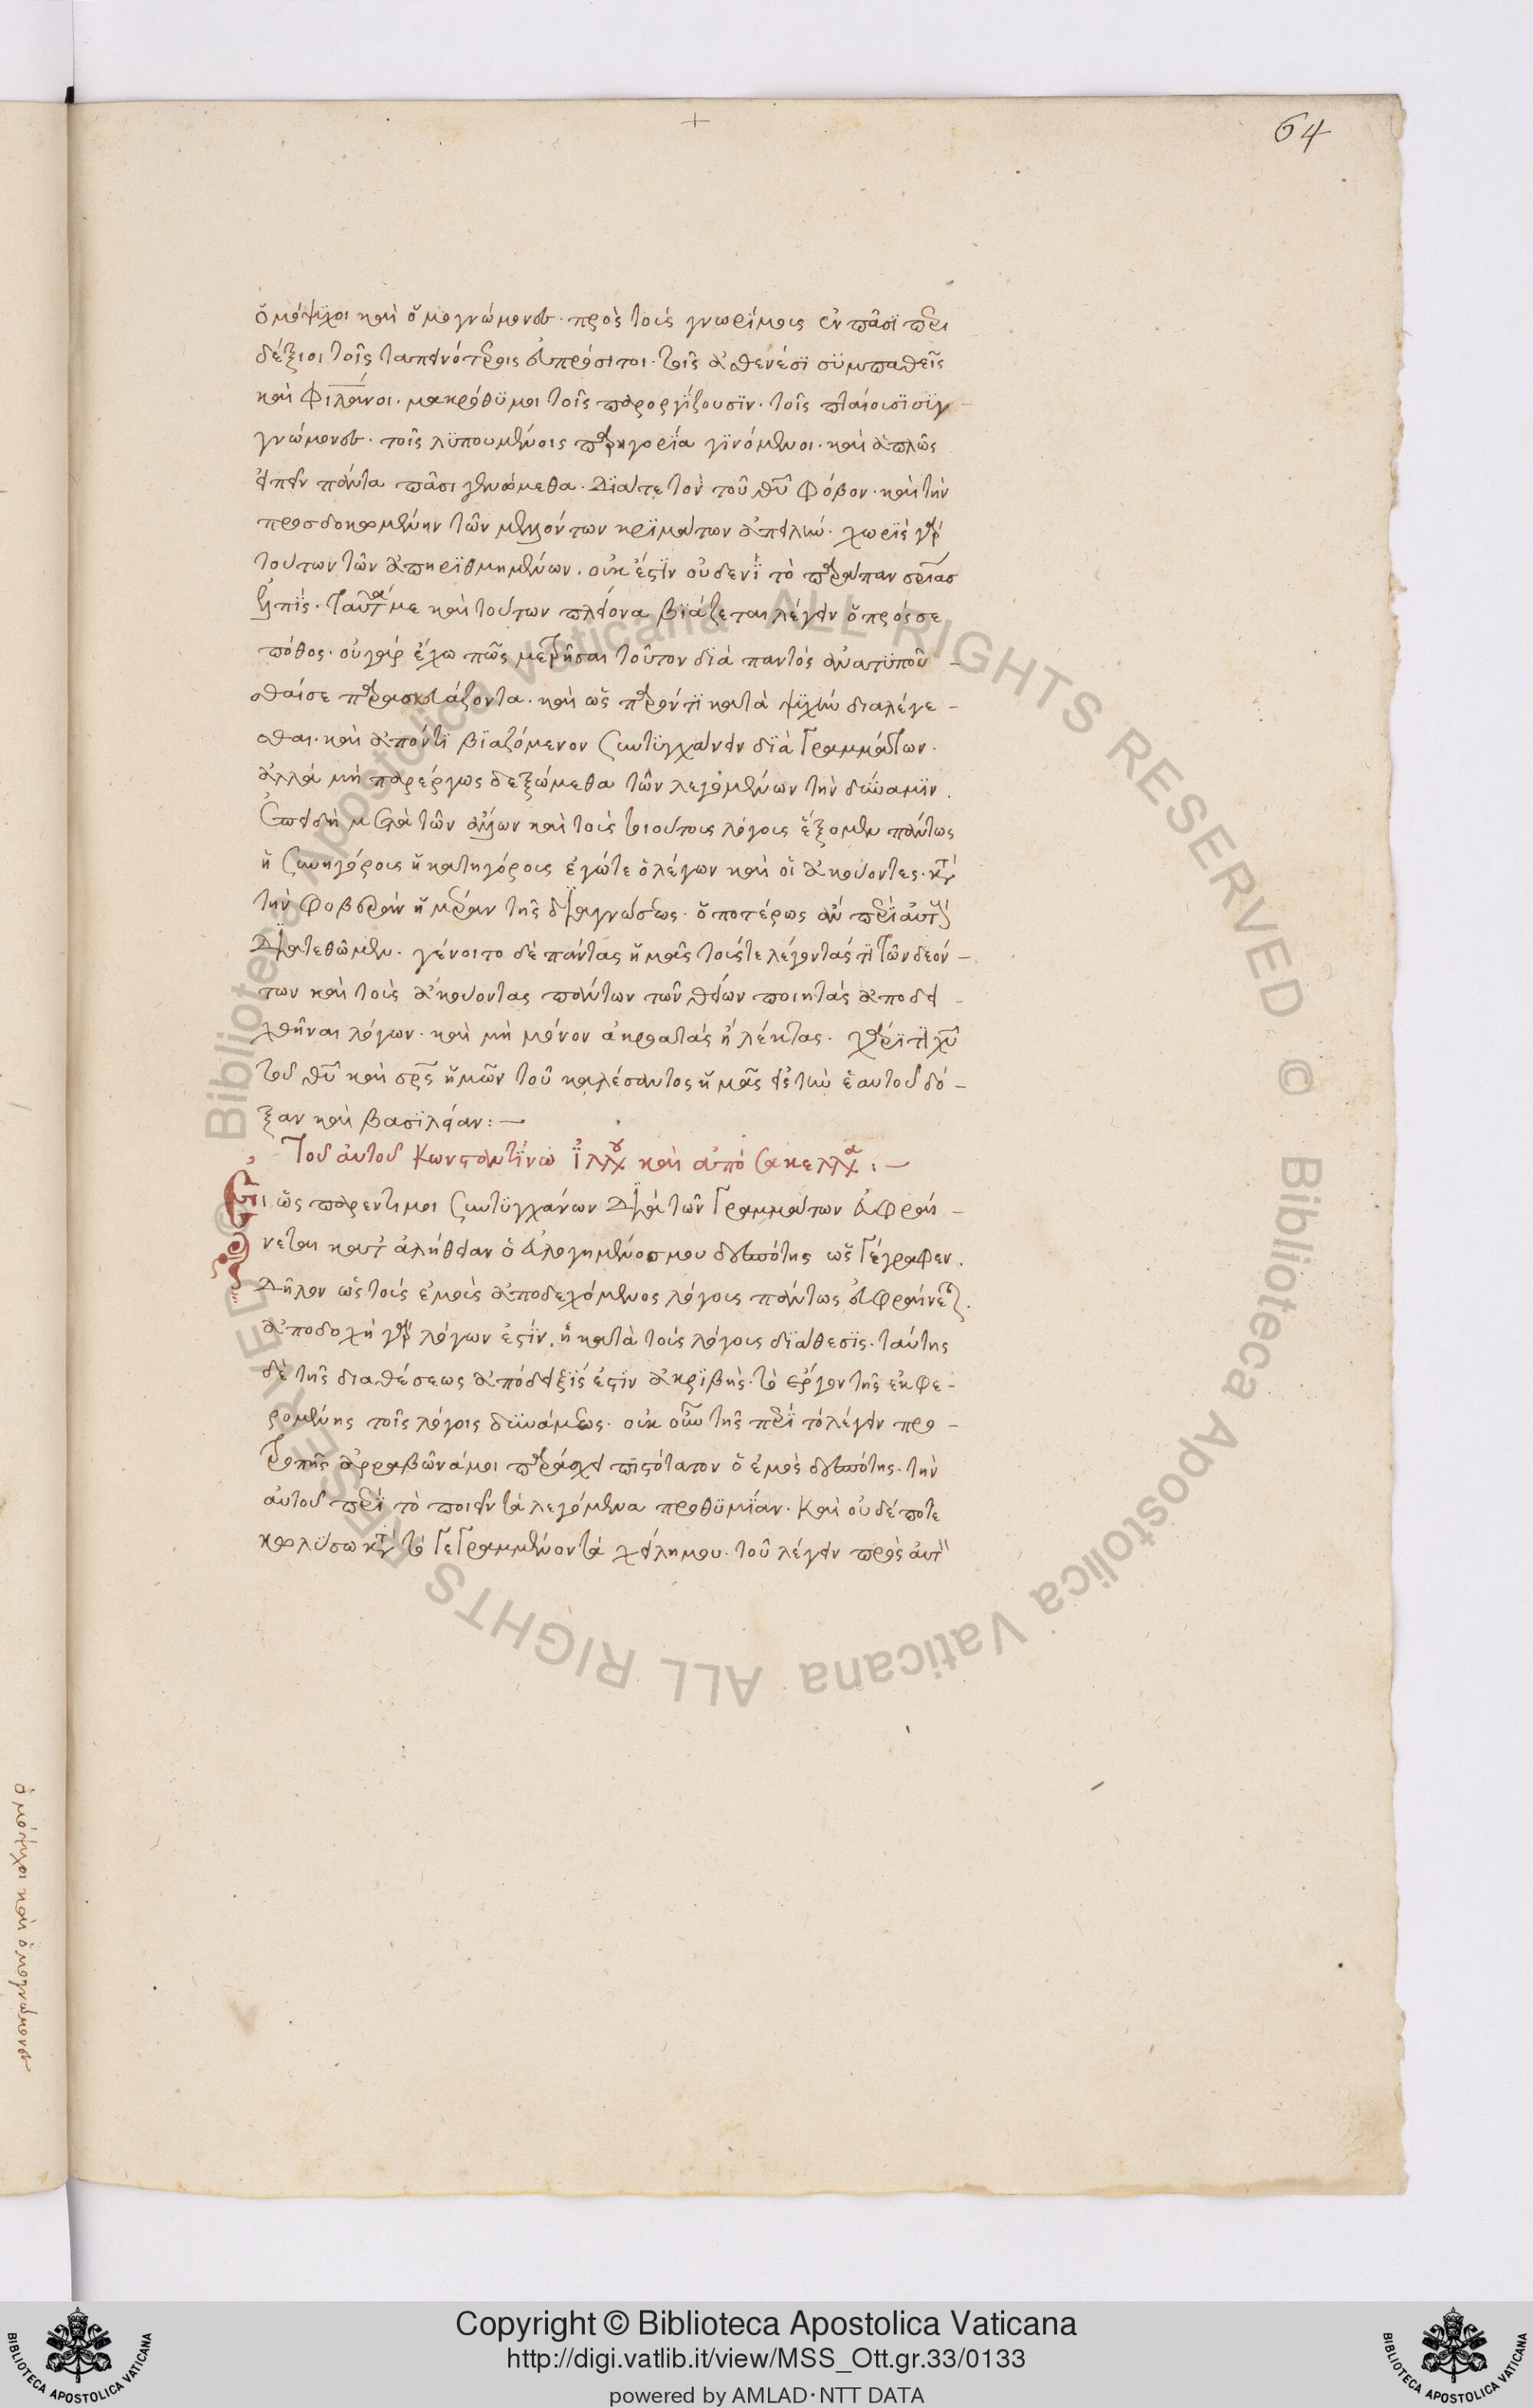 64
ὁμόψυχοι καὶ ὁμογνώμονες. πρὸς τοὺς γνωρίμους ἐν πᾶσι περι
δέξιοι τοῖς ταπεινοτέροις εὐπρόσιτοι. τοῖς ἀσθενέσι συμπαθεῖς
καὶ φιλάνοι. μακρόθυμοι τοῖς παροργίζουσιν. τοῖς πταίουσι συγ-
γνώμονες. τοῖς λυπουμένοις παρηγορία γινόμενοι. καὶ ἁπλῶς
εἰπεῖν πάντα πᾶσι γενώμεθα. διά τε τὸν τοῦ θυ φόβον. καὶ τὴν
προσδοκωμένην τῶν μελλόντων κριμάτων ἀπειλήν. χωρὶς γὰρ
τούτων τῶν ἀπηριθμημένων. οὐκ ἔστιν οὐδενὶ τὸ παράπαν σρίας
ἐλπίς. ταῦτά με καὶ τούτων πλείονα βιάζεται λέγειν ὁ πρός σε
πόθος. οὐ γὰρ ἔχω πῶς μετρῆσαι τοῦτον διὰ παντὸς ἀνατυποῦ-
σθαί σε παρασκευάζοντα. καὶ ὡς παρόντι κατὰ ψυχὴν διαλέγε-
σθαι. καὶ ἀπόντι βιαζόμενον συντυγχάνειν διὰ γραμμάτων.
ἀλλὰ μὴ παρέργως δεξώμεθα τῶν λεγομένων τὴν δύναμιν.
ἐπειδὴ μετὰ τῶν ἄλλων καὶ τοὺς τοιούτους λόγους ἕξομεν πάντως
ἢ συνηγόρους ἢ κατηγόρους ἐγώ τε ὁ λέγων καὶ οἱ ἀκούοντες. κατὰ
τὴν φοβερὰν ἡμέραν τῆς διαγνώσεως. ὁποτέρως ἂν περὶ αὐτοὺς
διατεθῶμεν. γένοιτο δὲ πάντας ἡμᾶς τούς τε λέγοντάς τι τῶν δεόν-
των καὶ τοὺς ἀκούοντας πάντων τῶν θείων ποιητὰς ἀποδει-
χθῆναι λόγων. καὶ μὴ μόνον ἀκροατὰς ἢ λέκτας. χάριτι χυ
τοῦ θυ καὶ σρς ἡμῶν τοῦ καλέσαντος ἡμᾶς εἰς τὴν ἑαυτοῦ δό-
ξαν καὶ βασιλείαν:—
Τοῦ αὐτοῦ Κωνσταντίνω ἰλλου καὶ ἀπὸ σακελλα:—
Ἔτι ὡς παρόντι μοι συντυγχάνων διὰ τῶν γραμμάτων εὐφραί-
νεται κατ' ἀλήθειαν ὁ εὐλογημένος μου δεσπότης ὡς γέγραφεν.
δῆλον ὡς τοὺς ἐμοὺς ἀποδεχόμενος λόγους πάντως εὐφραίνεται.
ἀποδοχὴ γὰρ λόγων ἐστίν. ἡ κατὰ τοὺς λόγους διάθεσις. ταύτης
δὲ τῆς διαθέσεως ἀπόδειξίς ἐστιν ἀκριβὴς. τὸ ἔργον τῆς ἐκφε-
ρομένης τοῖς λόγοις δυνάμεως. οὐκ οῦν τῆς περὶ τὸ λέγειν προ-
τροπῆς ἀρραβῶνά μοι παράσχει πιστότατον ὁ ἐμὸς δεσπότης. τὴν
αὐτοῦ περὶ τὸ ποιεῖν τὰ λεγόμενα προθυμίαν. καὶ οὐδέποτε
κωλύσω κατὰ τὸ γεγραμμένον τὰ χείλη μου. τοῦ λέγειν πρὸς αὐτὸν
ὁμόψυχοι καὶ ὁμογνώμονες
Copyright © Biblioteca Apostolica Vaticana
http://digi.vatlib.it/view/MSS_Ott.gr.33/0133
powered by AMLAD·NTT DATA
BIBLIOTECA APOSTOLICA VATICANA
BIBLIOTECA APOSTOLICA VATICANA
© Biblioteca Apostolica Vaticana ALL RIGHTS RESERVED
© Biblioteca Apostolica Vaticana ALL RIGHTS RESERVED